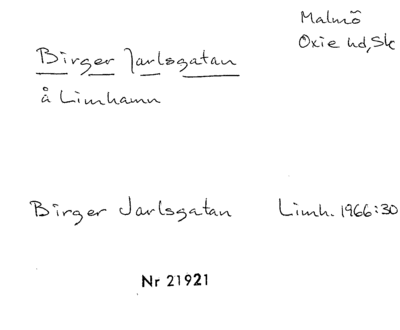 Malmö
Oxie hd, Sk
Birger Jarlsgatan
å Limhamn
Birger Jarlsgatan Limh. 1966:30
Nr 21921